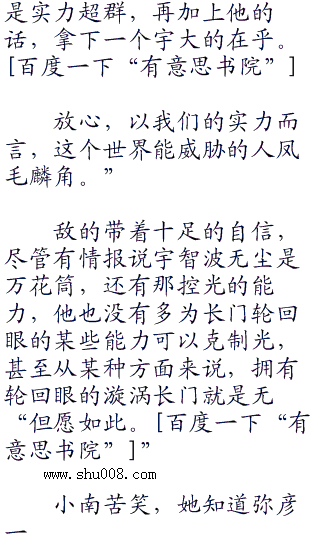 是实力超群，再加上他的
话，拿下一个宇大的在乎。
[百度一下“有意思书院”]
放心，以我们的实力而
言，这个世界能威胁的人凤
毛麟角。”
敌的带着十足的自信，
尽管有情报说宇智波无尘是
万花筒，还有那控光的能
力，他也没有多为长门轮回
眼的某些能力可以克制光，
甚至从某种方面来说，拥有
轮回眼的漩涡长门就是无
“但愿如此。[百度一下“有
意思书院”]”
www.shu008.com
小南苦笑，她知道弥彦
一